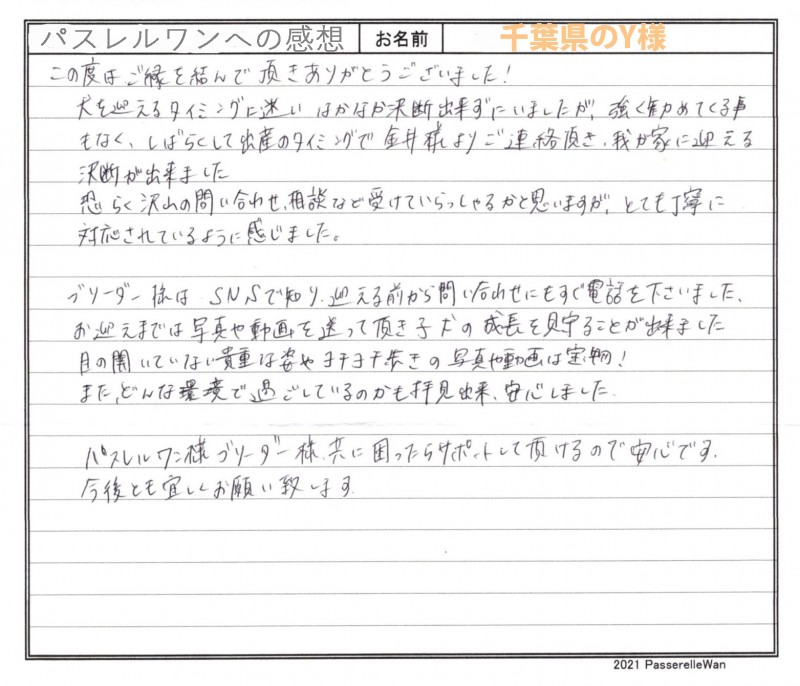 パスレルワンへの感想 お名前 千葉県のY様
この度はご縁を結んで頂きありがとうございました！
犬を迎えるタイミングに迷い なかなか決断出来ずにいましたが、強く勧めてくる事
もなく、しばらくして出産のタイミングで金井様よりご連絡頂き、我が家に迎える
決断が出来ました
恐らく沢山の問い合わせ、相談など受けていらっしゃるかと思いますが、とても丁寧に
対応されているように感じました。
ブリーダー様は SNSで知り、迎える前から問い合わせにもすぐ電話を下さいました、
お迎えまでは写真や動画を送って頂き子犬の成長を見守ることが出来ました
目の開いていない貴重な姿やヨチヨチ歩きの写真や動画は宝物！
また、どんな環境で過ごしているのかも拝見出来、安心しました.
パスレルワン様、ブリーダー様、共に困ったらサポートして頂けるので安心です.
今後とも宜しくお願い致します.
2021 PasserelleWan